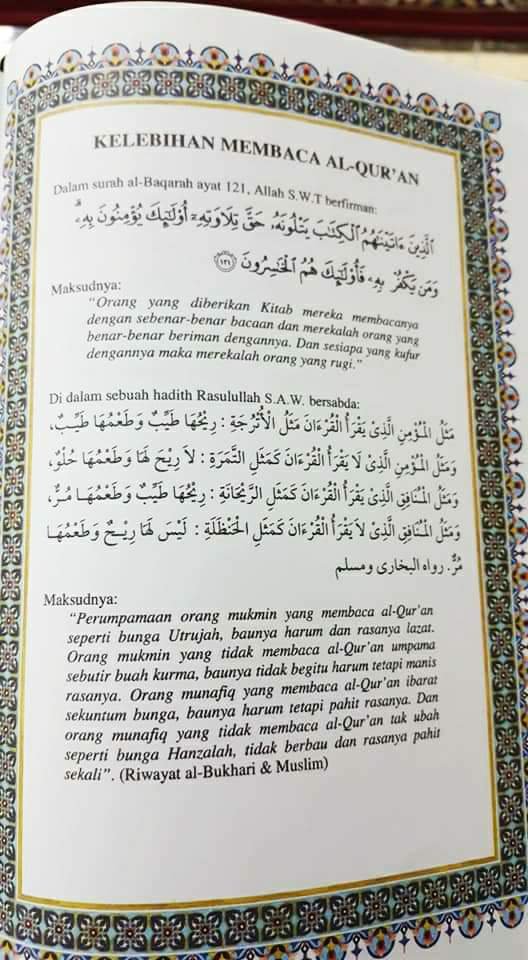 KELEBIHAN MEMBACA AL-QUR'AN
Dalam surah al-Baqarah ayat 121, Allah S.W.T berfirman:
ٱلَّذِينَ ءَاتَيْنَـٰهُمُ ٱلْكِتَـٰبَ يَتْلُونَهُۥ حَقَّ تِلَاوَتِهِۦٓ أُو۟لَـٰٓئِكَ يُؤْمِنُونَ بِهِۦ ۗ
وَمَن يَكْفُرْ بِهِۦ فَأُو۟لَـٰٓئِكَ هُمُ ٱلْخَـٰسِرُونَ ١٢١
Maksudnya:
"Orang yang diberikan Kitab mereka membacanya
dengan sebenar-benar bacaan dan merekalah orang yang
benar-benar beriman dengannya. Dan sesiapa yang kufur
dengannya maka merekalah orang yang rugi."
Di dalam sebuah hadith Rasulullah S.A.W. bersabda:
مَثَلُ الْمُؤْمِنِ الَّذِىْ يَقْرَأُ الْقُرْءَانَ مَثَلُ الْأُتْرُجَةِ : رِيْحُهَا طَيِّبٌ وَطَعْمُهَا طَيِّبٌ،
وَمَثَلُ الْمُؤْمِنِ الَّذِىْ لَا يَقْرَأُ الْقُرْءَانَ كَمَثَلِ التَّمْرَةِ : لاَ رِيْحَ لَهَا وَطَعْمُهَا حُلْوٌ،
وَمَثَلُ الْمُنَافِقِ الَّذِىْ يَقْرَأُ الْقُرْءَانَ كَمَثَلِ الرَّيْحَانَةِ : رِيْحُهَا طَيِّبٌ وَطَعْمُهَا مُرٌّ،
وَمَثَلُ الْمُنَافِقِ الَّذِىْ لاَ يَقْرَأُ الْقُرْءَانَ كَمَثَلِ الْحَنْظَلَةِ : لَيْسَ لَهَا رِيْحٌ وَطَعْمُهَا
مُرٌّ. رواه البخارى ومسلم
Maksudnya:
"Perumpamaan orang mukmin yang membaca al-Qur'an
seperti bunga Utrujah, baunya harum dan rasanya lazat.
Orang mukmin yang tidak membaca al-Qur'an umpama
sebutir buah kurma, baunya tidak begitu harum tetapi manis
rasanya. Orang munafiq yang membaca al-Qur'an ibarat
sekuntum bunga, baunya harum tetapi pahit rasanya. Dan
orang munafiq yang tidak membaca al-Qur'an tak ubah
seperti bunga Hanzalah, tidak berbau dan rasanya pahit
sekali". (Riwayat al-Bukhari & Muslim)